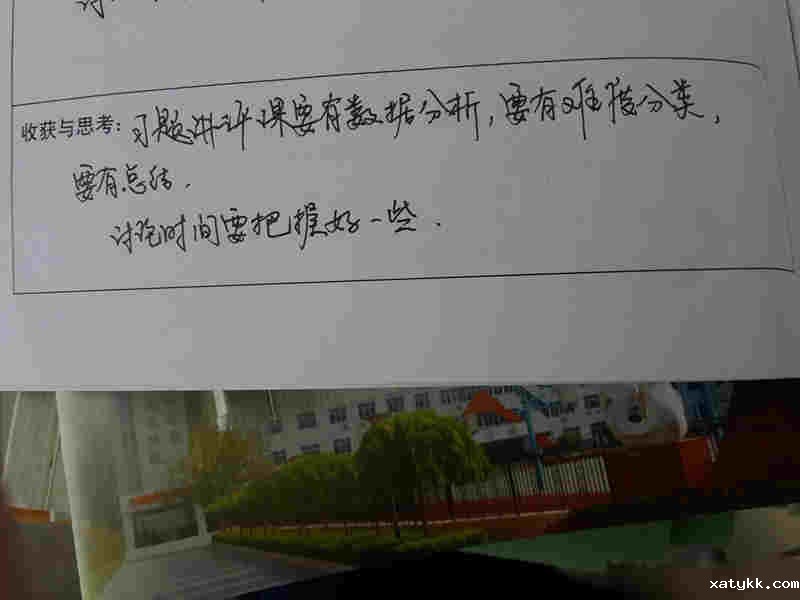 收获与思考：习题讲评课要有数据分析，要有难错分类，
要有总结．
讨论时间要把握好一些．
xatykk.com